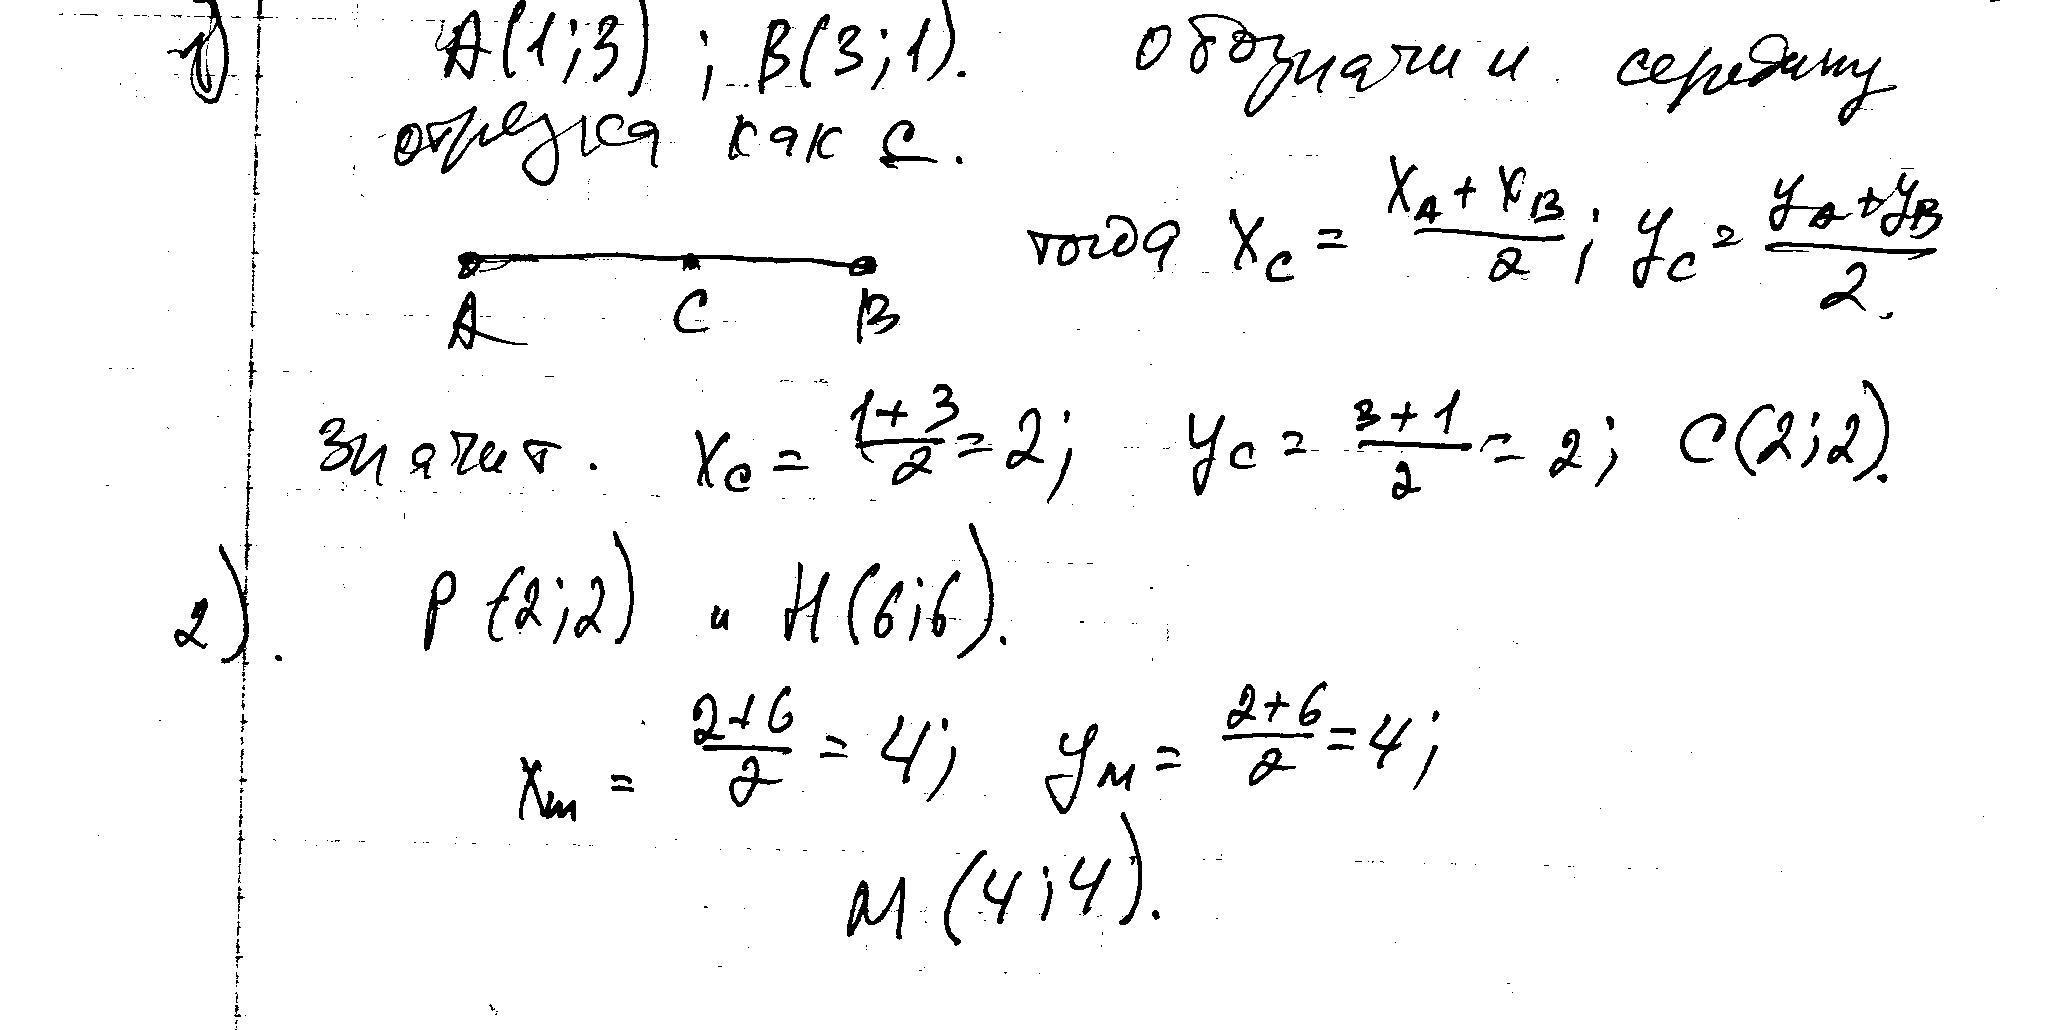 1) A(1;3) ; B(3;1). Обозначим середину
отрезка как C.
A C B
тогда x_C = (x_A + x_B)/2 ; y_C = (y_A + y_B)/2.
значит. x_C = (1+3)/2 = 2; y_C = (3+1)/2 = 2; C(2;2).
2). P(2;2) и H(6;6).
x_m = (2+6)/2 = 4; y_M = (2+6)/2 = 4;
M(4;4).